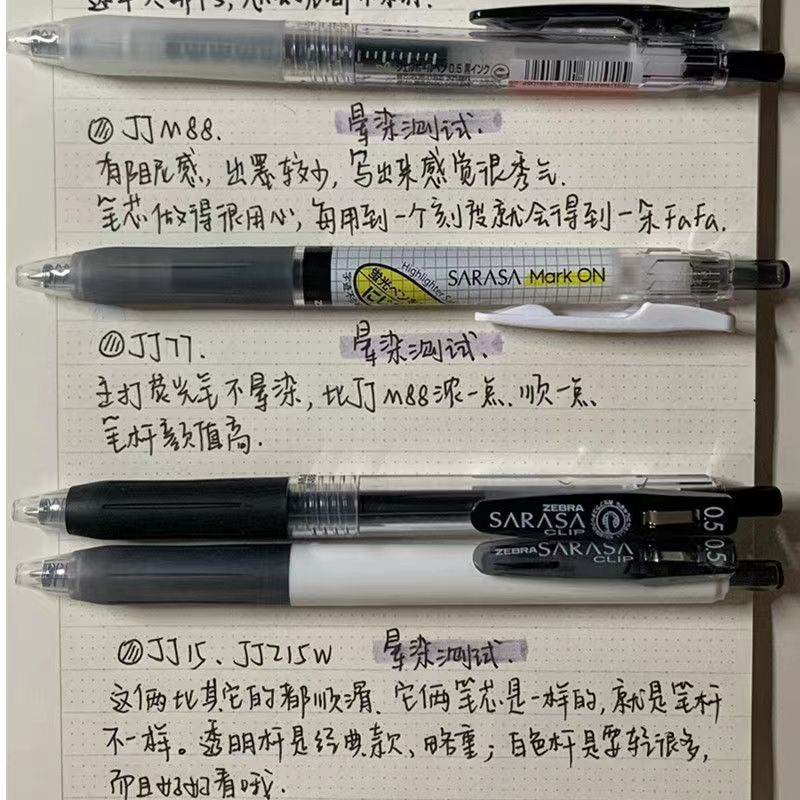 ゲルボールペン 0.5 黒インク
JJM88. 晕染测试.
有阻尼感,出墨较少,写出来感觉很秀气.
笔芯做得很用心,每用到一个刻度就会得到一朵FaFa.
Highlighter
蛍光ペン
SARASA Mark ON
JJ77. 晕染测试.
主打荧光笔不晕染,比JJM88浓一点.顺一点.
笔杆颜值高.
ZEBRA
SARASA
CLIP
0.5
ZEBRA SARASA
CLIP
0.5
JJ15、JJ215W 晕染测试.
这俩比其它的都顺滑、它俩笔芯是一样的,就是笔杆
不一样。透明杆是经典款、略重;白色杆是要轻很多,
而且好好看哦.